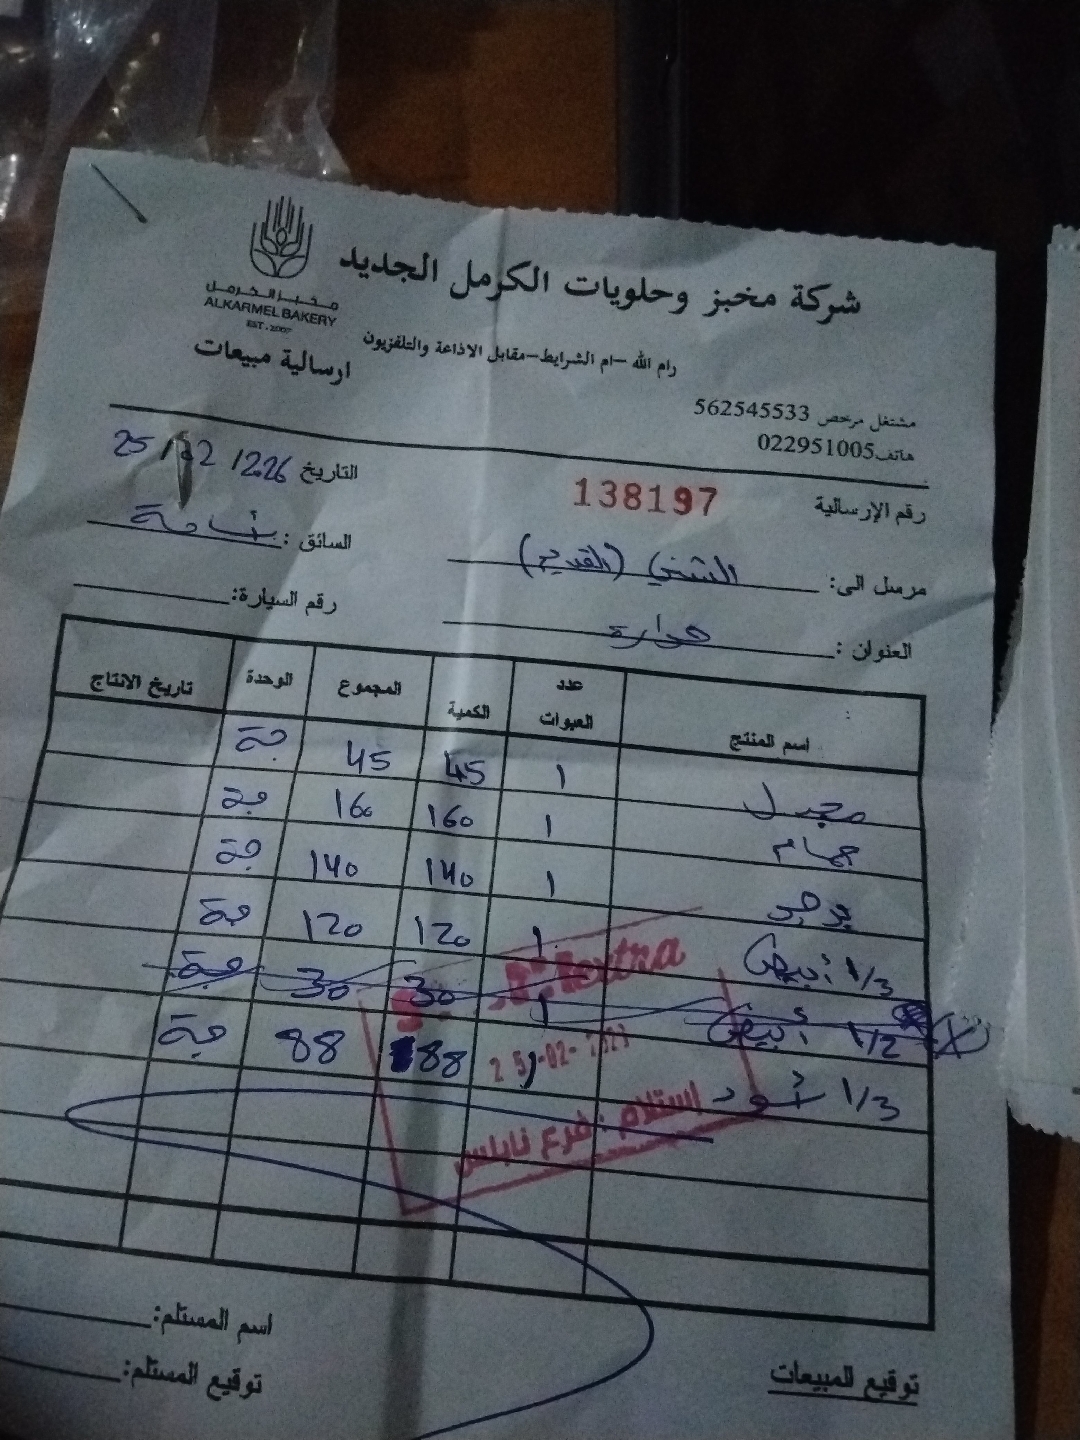 شركة مخبز وحلويات الكرمل الجديد
مخبز الكرمل
ALKARMEL BAKERY
EST . 2007
رام الله -ام الشرايط-مقابل الاذاعة والتلفزيون
ارسالية مبيعات
مشتغل مرخص 562545533
هاتف022951005
رقم الإرسالية 138197
التاريخ
مرسل الى: (القديم)
السائق:
العنوان : حوارة
رقم السيارة:
اسم المنتج عدد العبوات الكمية المجموع الوحدة تاريخ الانتاج
مجدل 1 45 45 حبة
حمام 1 160 160 حبة
1 140 140 حبة
1/3 أبيض 1 120 120 حبة
1/2 أبيض 1 30 30 حبة
1/3 أسود 1 88 88 حبة
extra
استلام : فرع نابلس
اسم المستلم:
توقيع المبيعات
توقيع المستلم: